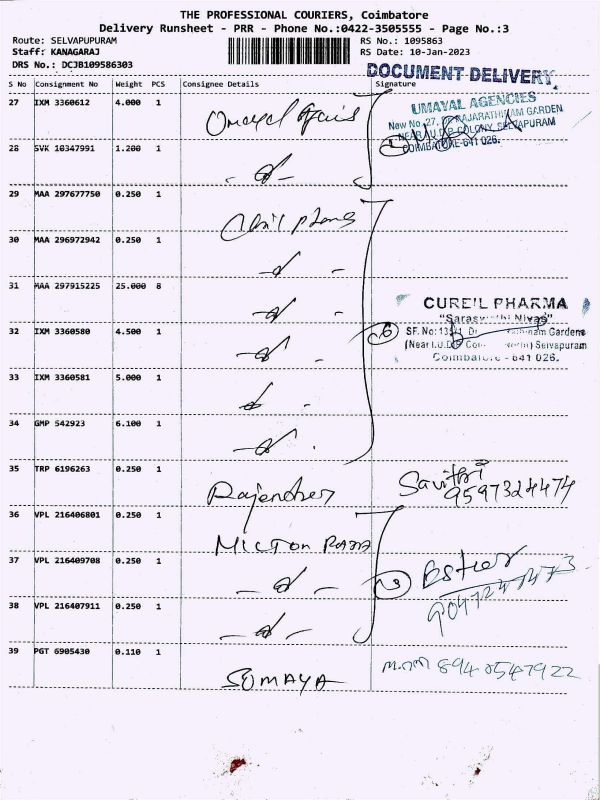 THE PROFESSIONAL COURIERS, Coimbatore
Delivery Runsheet - PRR - Phone No.:0422-3505555 - Page No.:3
Route: SELVAPUPURAM
RS No.: 1095863
Staff: KANAGARAJ
RS Date: 10-Jan-2023
DRS No.: DCJB109586303
DOCUMENT DELIVERY
S No Consignment No Weight PCS Consignee Details Signature
27 IXM 3360612 4.000 1 Omayal
UMAYAL AGENCIES
New No 27, RAJARATHINAM GARDEN
NEAR COLONY, SELVAPURAM
COIMBATORE-641 026.
28 SVK 10347991 1.200 1
29 MAA 297677750 0.250 1
30 MAA 296972942 0.250 1
31 MAA 297915225 25.000 8
CUREIL PHARMA
"Saraswathi Nivas"
32 IXM 3360580 4.500 1 6
SF. No: Gardens
(Near I.U.D.P Selvapuram
Coimbatore - 641 026.
33 IXM 3360581 5.000 1
34 GMP 542923 6.100 1
35 TRP 6196263 0.250 1 Rajendren Savithri
9597324474
36 VPL 216406801 0.250 1 MILTON RAJA
37 VPL 216409708 0.250 1 3 Esther
9047247473
38 VPL 216407911 0.250 1
39 PGT 6905430 0.110 1 SOMAYA 8940547922